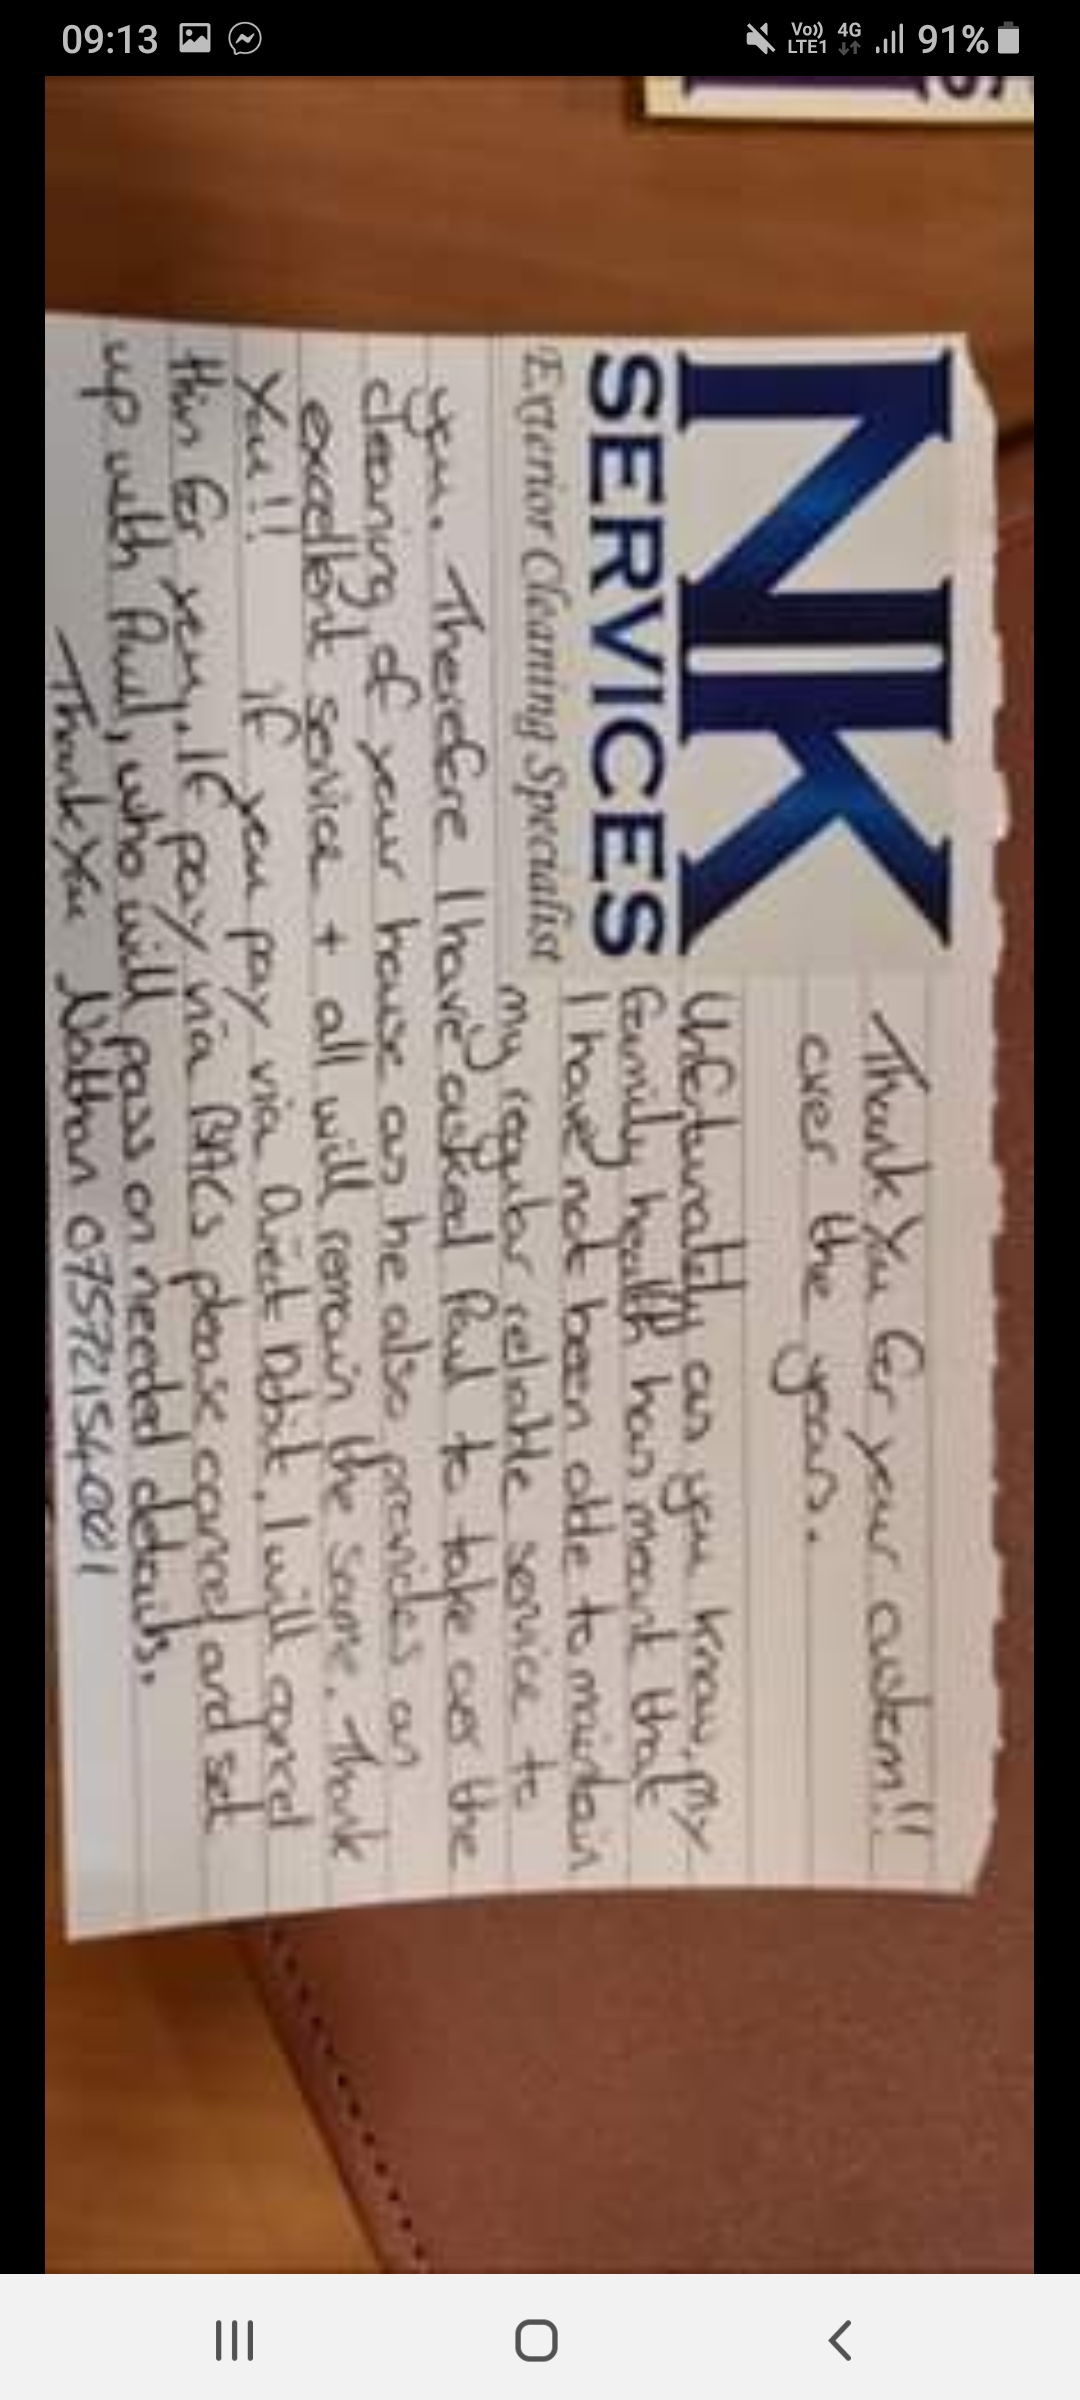 09:13
Vo)) LTE1 4G 91%
S
NK
SERVICES
Exterior Cleaning Specialist
Thank You for your custom!!
over the years.
Unfortunately as you know, my
family health has meant that
I have not been able to maintain
my regular reliable service to
you. Therefore I have asked Paul to take over the
cleaning of your house as he also provides an
excellent service + all will remain the same. Thank
You!! If you pay via Direct Debit, I will cancel
this for you. If pay via BACs please cancel and set
up with Paul, who will pass on needed details.
Thank You Nathan